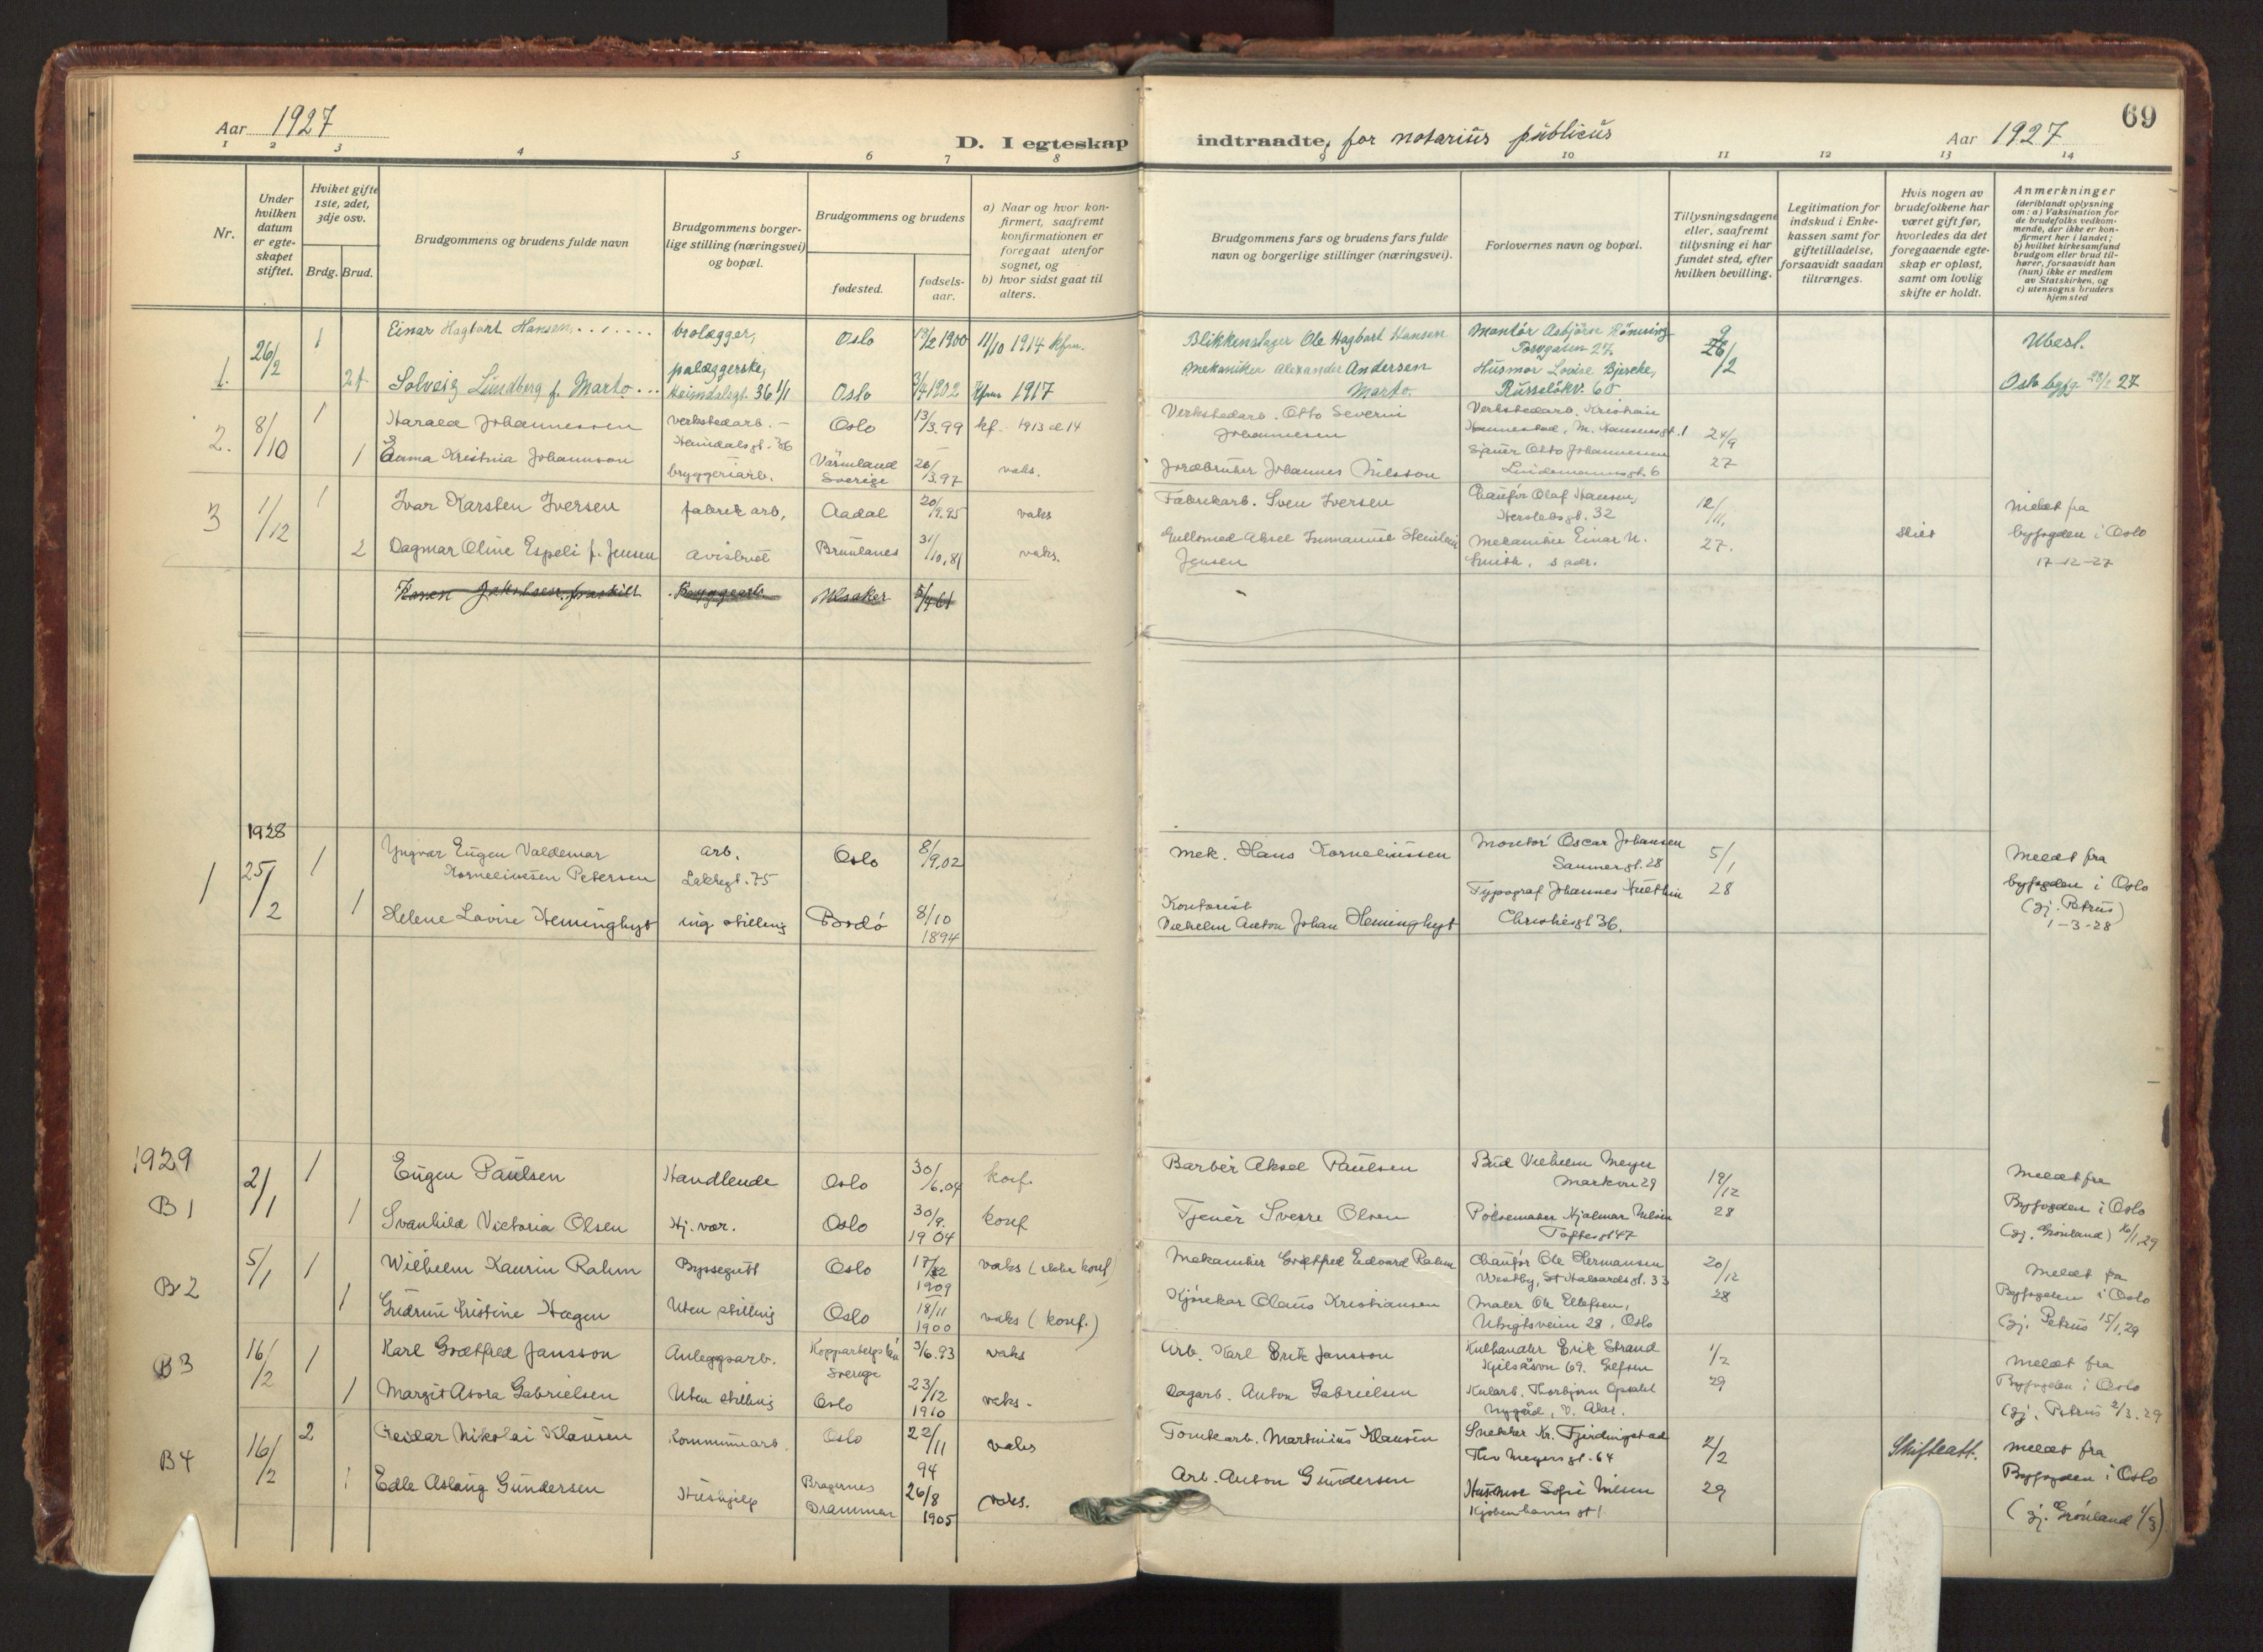 69
Aar 1927
D. I egteskap indtraadte, for notarius publicus
Aar 1927
1 2 3 4 5 6 7 8 9 10 11 12 13 14
Nr.
Under hvilken datum er egte-skapet stiftet.
Hviket gifte 1ste, 2det, 3dje osv.
Brdg. Brud.
Brudgommens og brudens fulde navn
Brudgommens borger-lige stilling (næringsvei) og bopæl.
Brudgommens og brudens
fødested.
fødsels-aar.
a) Naar og hvor kon-firmert, saafremt konfirmationen er foregaat utenfor sognet, og
b) hvor sidst gaat til alters.
Brudgommens fars og brudens fars fulde navn og borgerlige stillinger (næringsvei).
Forlovernes navn og bopæl.
Tillysningsdagene eller, saafremt tillysning ei har fundet sted, efter hvilken bevilling.
Legitimation for indskud i Enke-kassen samt for giftetilladelse, forsaavidt saadan tiltrænges.
Hvis nogen av brudefolkene har været gift før, hvorledes da det foregaaende egte-skap er opløst, samt om lovlig skifte er holdt.
Anmerkninger
(deriblandt oplysning om: a) Vaksination for de brudefolks vedkom-mende, der ikke er kon-firmert her i landet; b) hvilket kirkesamfund brudgom eller brud til-hører, forsaavidt han (hun) ikke er medlem av Statskirken, og c) utensogns bruders hjemsted
1. 26/2 1 Einar Hagbart Hansen brolægger, Oslo 1900 11/10 1914 Kfm. Blikkenslager Ole Hagbart Hansen Montør Asbjørn Rønning 9
Torvgaten 27. 26/2 Ubesl.
2 Solveig Lundberg f. Marto pålæggerske, Heimdalsgt. 36 Oslo 1902 1917 Mekaniker Alexander Andersen Marto. Husmor Lovise Bjercke, Russeløkv. 60 Oslo bygfg. 27
2. 8/10 1 Harald Johannessen Verkstedarb. Heimdalsgt. 36 Oslo 13/3.99 kf. 1913 el 14 Verkstedarb. Otto Severin Johannesen Verkstedarb. Kristian Hannestad, M. Hansensgt. 1 24/9
1 Emma Kristina Johannson bryggeriarb. Värmland Sverige 26/3.97 vaks. Jordbruker Johannes Nilsson Sjauer Otto Johannessen Lindemannsgt. 6 27
3 1/12 1 Ivar Karsten Iversen fabrikarb. Aadal 20/9.95 vaks Fabrikarb. Sven Iversen Chaufør Olaf Hansen, Herslebsgt. 32 12/11. Meldt fra
2 Dagmar Oline Espeli f. Jensen avisbud Brunlanes 31/10.81 vaks. Gullsmed Aksel Immanuel Jensen Mekaniker Einar N. Smith, s adr. 27. skilt byfogden i Oslo 17-12-27
Karen Jakobsen fraskilt Ulsaker
1928
1 25/2 1 Yngvar Eugen Valdemar Korneliussen Petersen arb. Lakkegt. 75 Oslo 8/9.02 Mek. Hans Korneliussen Montør Oscar Johansen Sannergt. 28 5/1 Meldt fra byfogden i Oslo
1 Helene Lovise Heminghyt ing. stilling Bodø 8/10 1894 Kontorist Vilhelm Anton Johan Heminghyt Typograf Johannes Christiesgt 36. 28 (gj. Petrus) 1-3-28
1929
B 1 2/1 1 Eugen Paulsen Handlende Oslo 30/6.04 konf. Barbér Aksel Paulsen Bud Vilhelm Meyer Markvn 29 19/12 Meldt fra
1 Svanhild Victoria Olsen Hj. vær. Oslo 30/9. 1904 konf Tjener Sverre Olsen Pølsemaker Hjalmar Nilsen Toftesgt 47 28 Byfogden i Oslo (gj. Grønland) 16/1.29
B 2 5/1 1 Wilhelm Kaurin Rahm Byssegutt Oslo 17/12 1909 vaks (ikke konf) Mekaniker Gottfred Edvard Rahm Chaufør Ole Hermansen Westby, St Halvardsgt. 33 20/12 Meldt fra
1 Gudrun Kristine Hagen Uten stilling Oslo 18/11 1900 vaks (konf.) Kjørekar Olaus Kristiansen Maler Ole Ellefsen, Utsigtsveien 28. Oslo 28 Byfogden i Oslo gj. Petrus 15/1.29
B 3 16/2 1 Karl Gottfred Jansson Anleggsarb. Kopparbergs län Sverige 3/6.93 vaks Arb. Karl Erik Jansson Kulhandler Erik Strand Kjelsåsvn 69. Grefsen 1/2 Meldt fra
1 Margit Asora Gabrielsen Uten stilling Oslo 23/12 1910 vaks. Dagarb. Anton Gabrielsen Kularb. Thorbjørn Opsahl Nygård, v. Aker. 29 Byfogden i Oslo (gj. Petrus 2/3.29
B 4 16/2 2 Reidar Nikolai Klausen Kommunearb. Oslo 22/11 94 vaks Tomtearb. Martinius Klausen Snekker Kr. Fjerdingstad Thv Meyers gt. 64 2/2 Skifteatt. Meldt fra
1 Edle Aslaug Gundersen Hushjelp Bragernes Drammen 26/8 1905 vaks. Arb. Anton Gundersen Husmor Sofie Nilsen Kjøbenhavns gt 1. 29 Byfogden i Oslo (gj. Grønland 1/3)